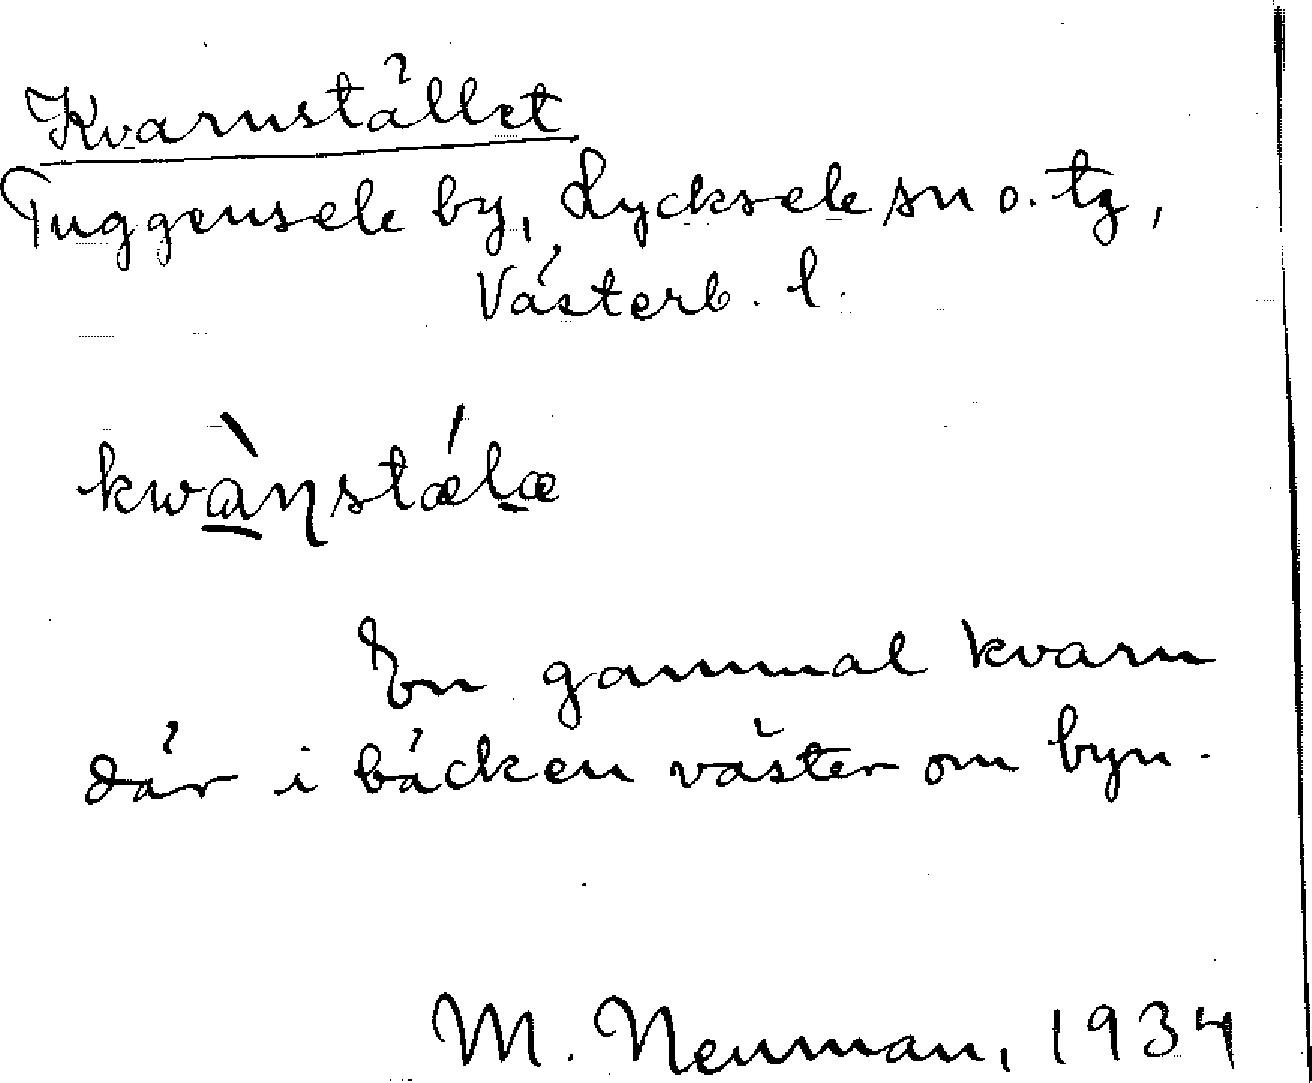 Kvarnstället
Tuggensele by, Lycksele sn o. tg,
Västerb. l.
kwàɳstǽlæ
En gammal kvarn
där i bäcken väster om byn.
M. Neuman, 1934